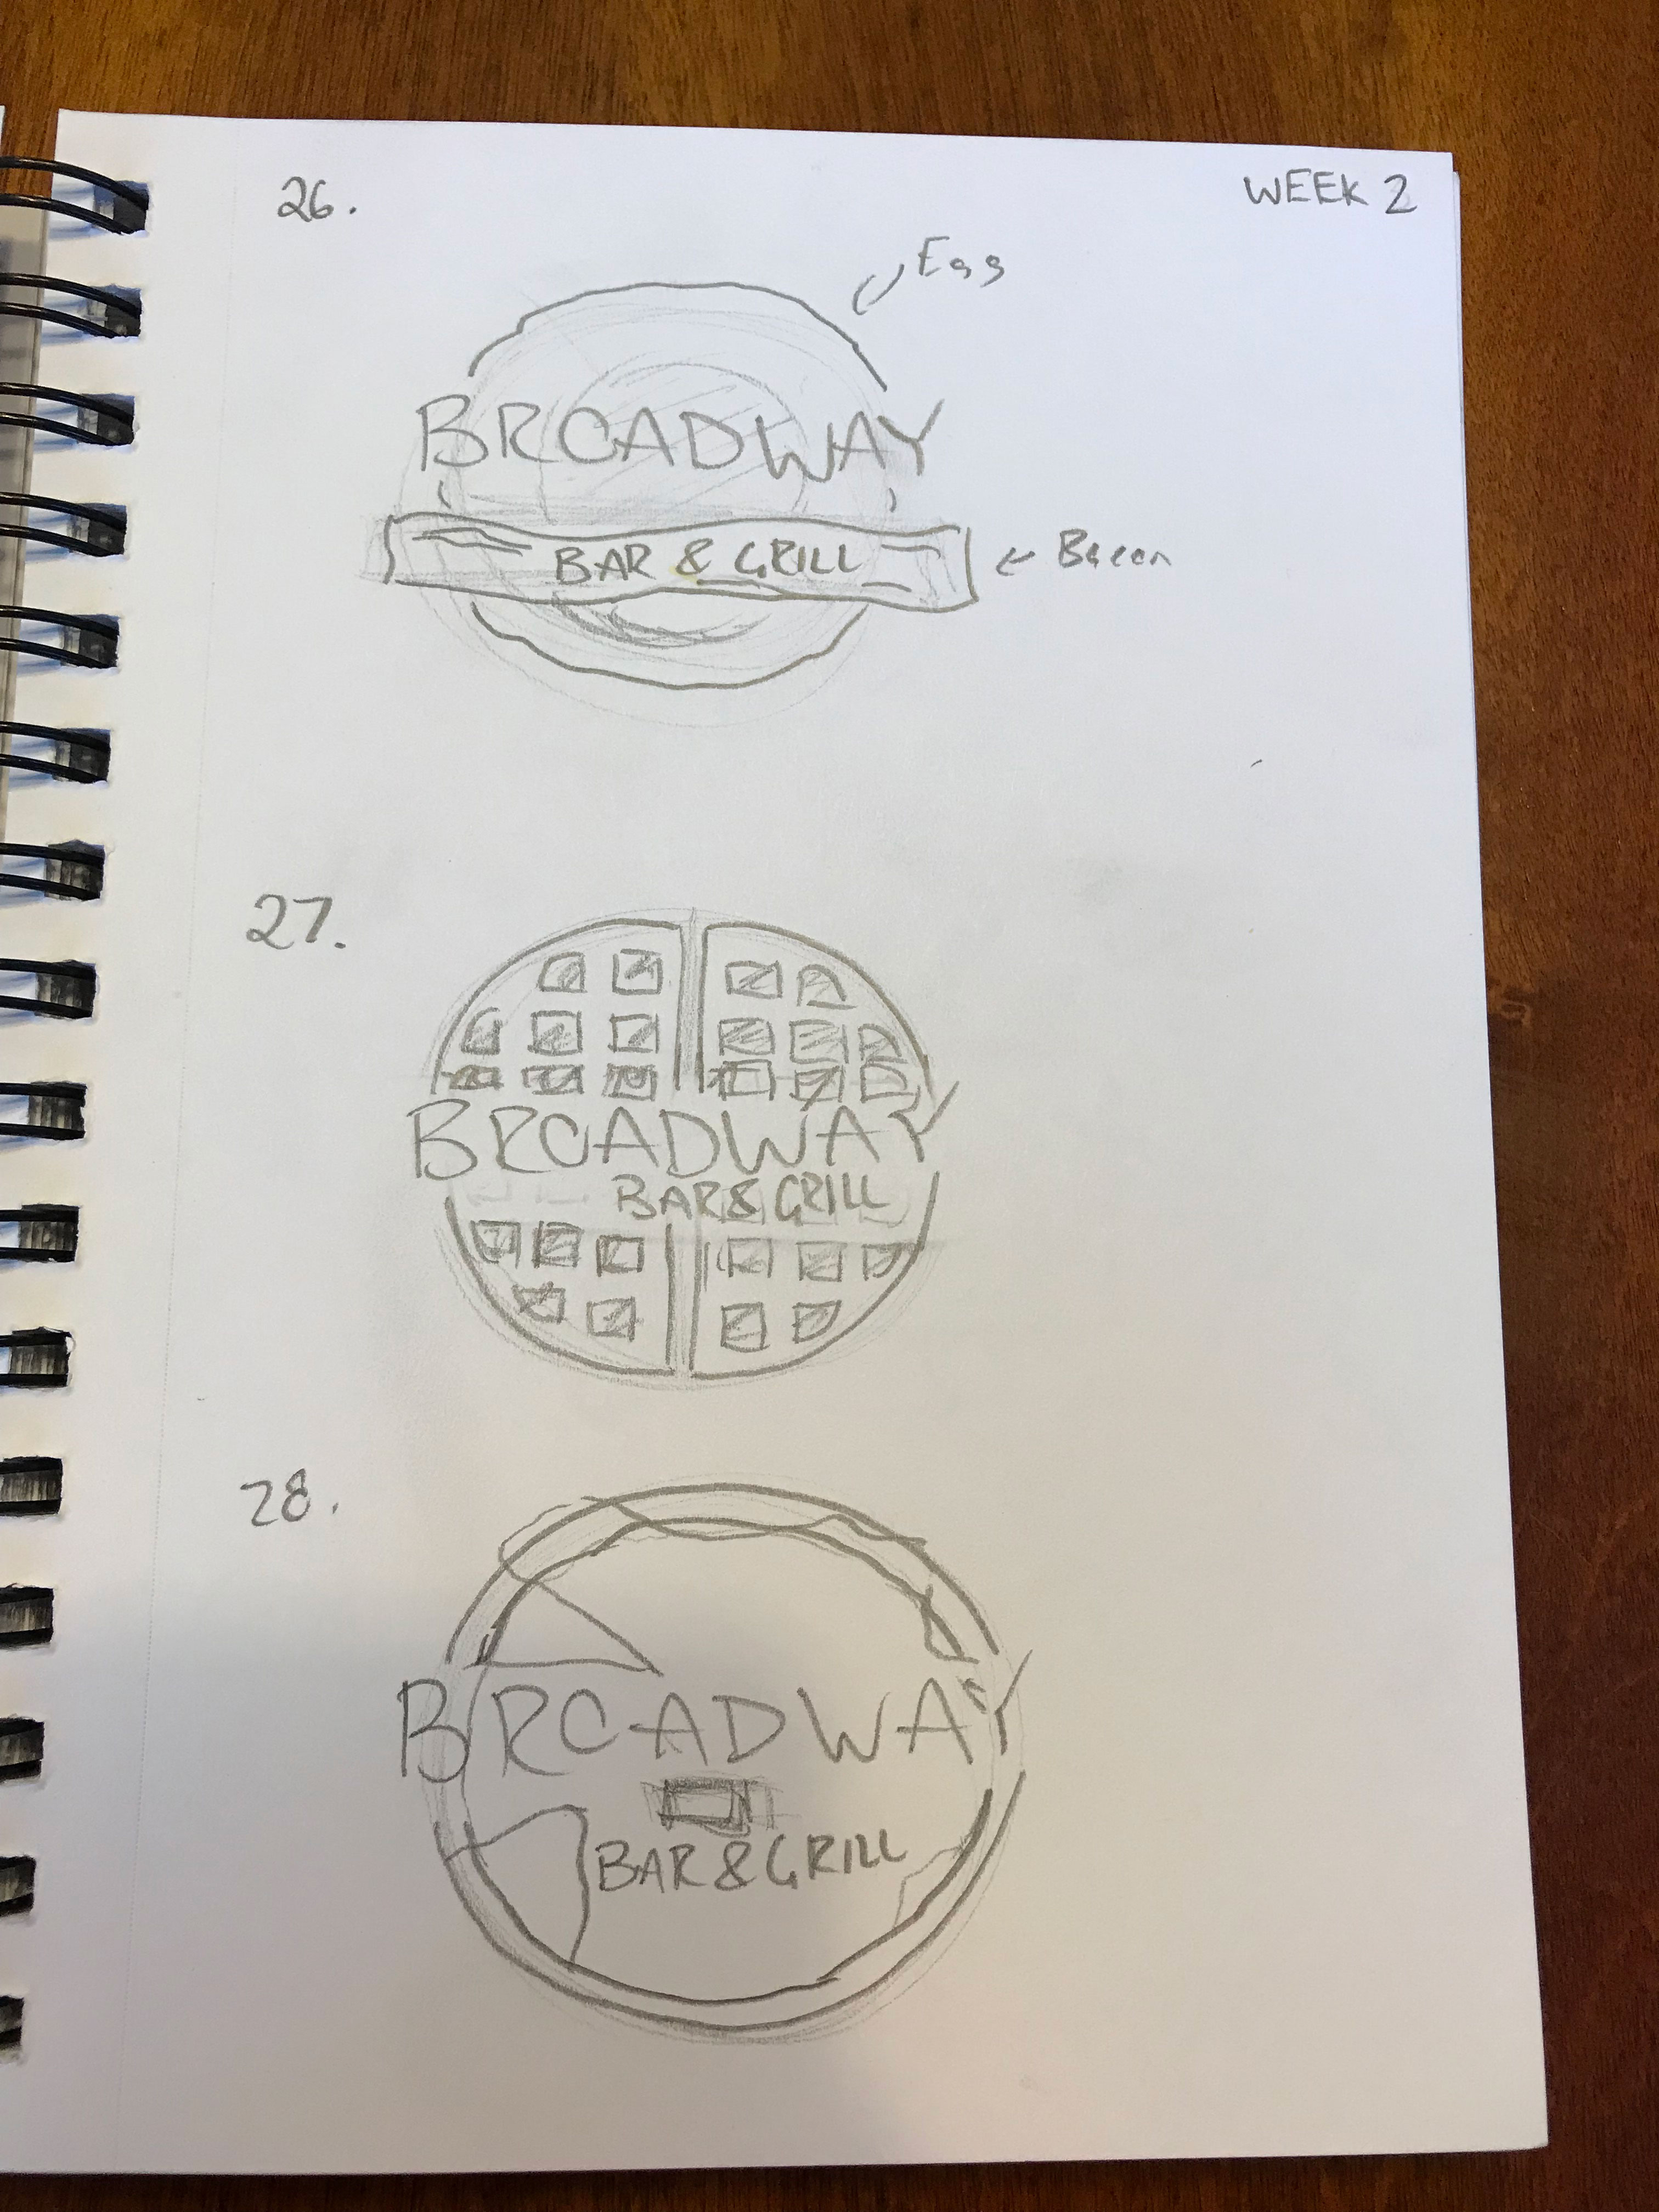 26.
WEEK 2
Egg
BROADWAY
BAR & GRILL
← Bacon
27.
BROADWAY
BAR & GRILL
28.
BROADWAY
BAR & GRILL